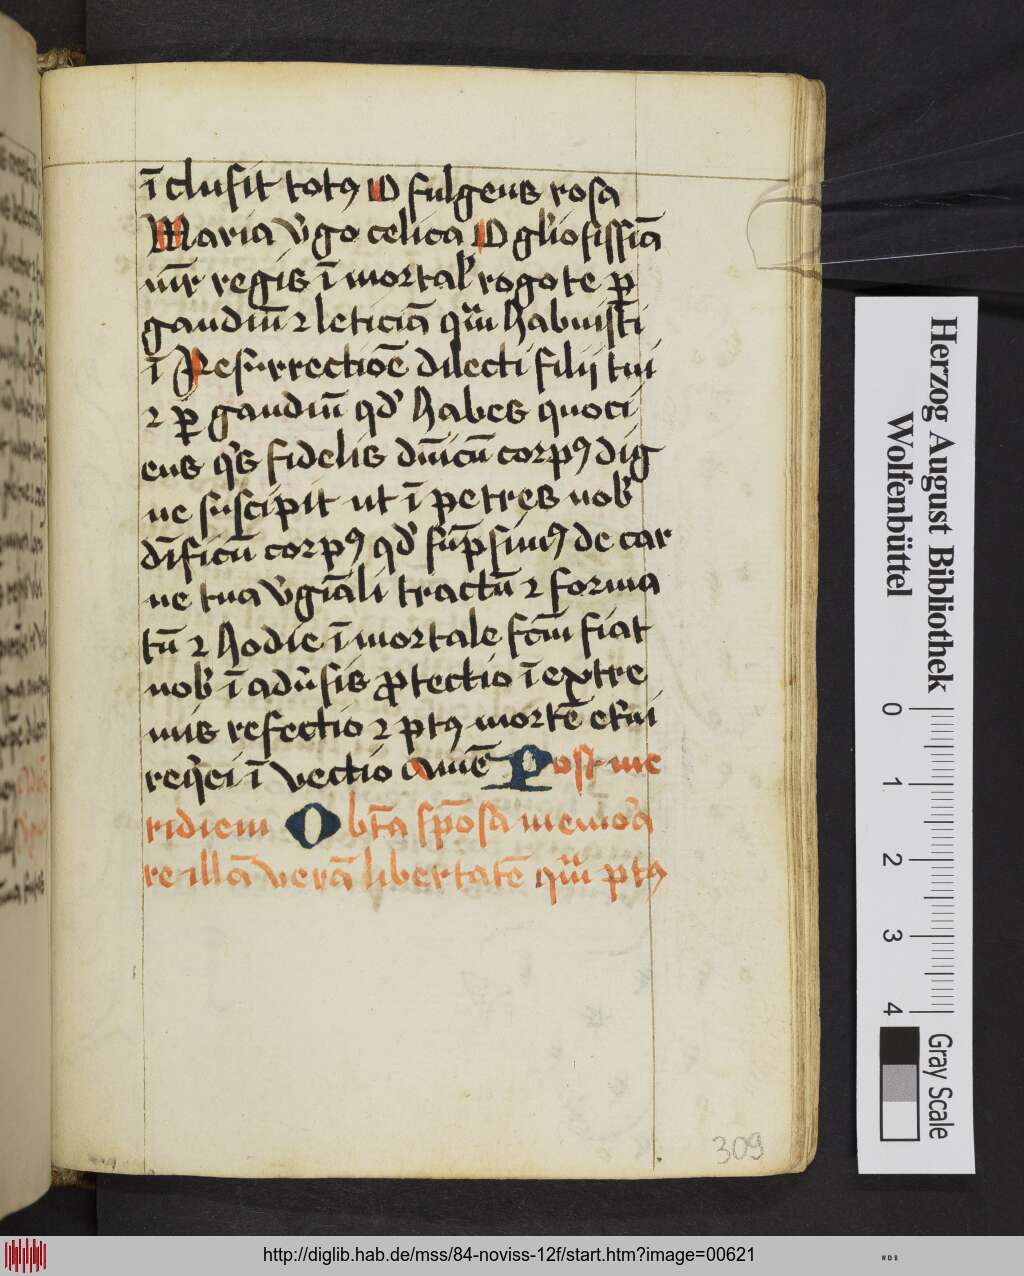 ī clusit totꝰ O fulgens rosa
Maria v̓go celica O gl̓iosissīa
mr̄ regis ī mortal̓ rogo te ꝑ
gaudiū ⁊ leticiā qm̄ habuisti
ī Resurrectiōe dilecti filij tui
⁊ ꝑ gaudiū qd̓ habes quoci
ens qͥs fidelis dn̄icū corpꝰ dig
ne suscipit ut ī petres nob̓
dīficū corpꝰ qd̓ sūpsimꝰ de car
ne tua v̓gīali tractū ⁊ forma
tū ⁊ hodie ī mortale fc̄m fiat
nob̓ ī adu̓sis ꝓtectio ī extre
mis refectio ⁊ ptꝰ mortē et̓ni
reqͥei ī vectio amē Post me
ridiem O bt̄a spōsa memōa
re illā verā libertatē qm̄ ptꝰ
309
Herzog August Bibliothek
Wolfenbüttel
0 1 2 3 4
Gray Scale
http://diglib.hab.de/mss/84-noviss-12f/start.htm?image=00621